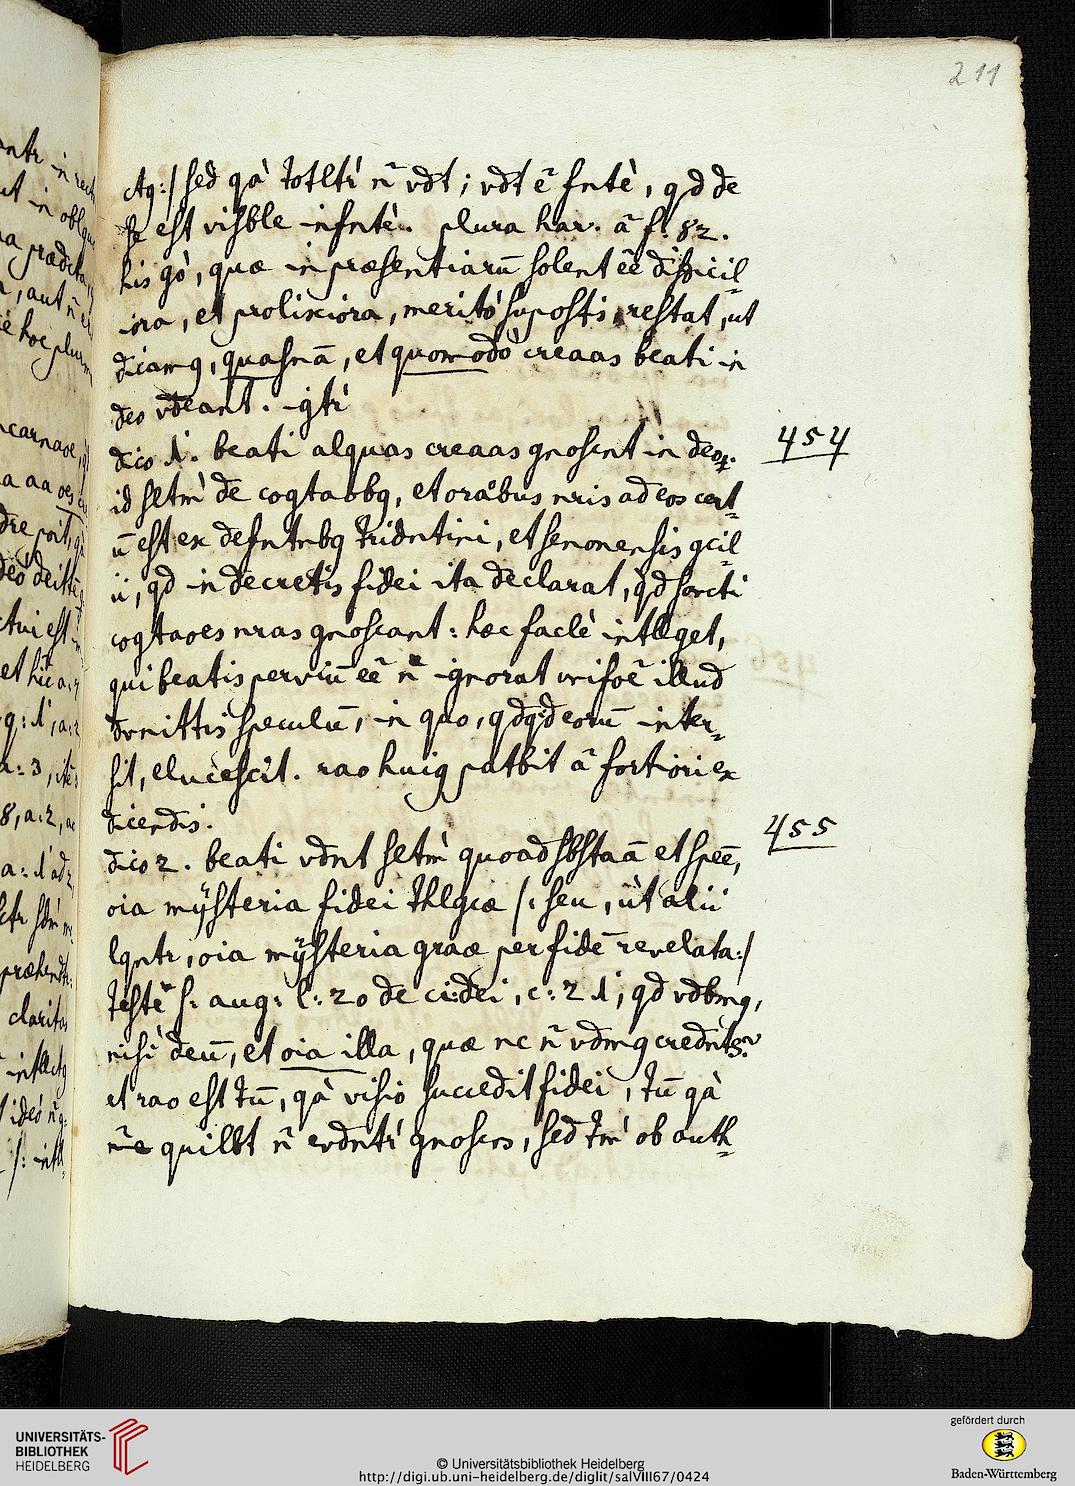 211
ctq:/ sed qà totltr̀ ñ vdt; vdt ẽ fntè, qd de
se est visble infntè. plura har. ã f: 82.
his gò, quæ in præsentiarũ solent ẽe difficil=
iora, et prolixiora, meritò supostis, restat, ut
dicamq, quasnã, et quomodò creaas beati in
deo vdeant. igtr̀
454
dico 1. beati alquas creaas gnoscnt in deo.
id setm̀ de cogtaobq, et oraõbus nris ad eos cert=
ũ est ex defntnbq tridntini, et senonensis gcil=
ii, qd in decretis fidei ita declarat, qd sancti
cogtaoes nras gnoscant: hæc faclè intllget,
qui beatis perviũ eẽ ñ ignorat vnifoẽ illud
dvnittis speculũ, in quo, qdqd eorũ inter=
sit, elucescit. rao huiq patbit ã fortiori ex
dicendis.
455
dico 2. beati vdnt setm̀ quoad sbstaã et speẽ,
oia mÿsteria fidei thlgcæ /: seu, ùt alii
lqntr, oia mÿsteria graæ per fidẽ revelata:/
testè s: aug: l: 20 de ci: dei, c: 21; qd vdbmq,
nisì deũ, et oia illa, quæ nc ñ vdmq credntes?
et rao est tũ, qà visiò succedit fidei, tũ qà
ñe quilbt ñ evdntr̀ gnoscns, sed tm̀ ob auth=
UNIVERSITÄTS-
BIBLIOTHEK
HEIDELBERG
© Universitätsbibliothek Heidelberg
http://digi.ub.uni-heidelberg.de/diglit/salVIII67/0424
gefördert durch
Baden-Württemberg